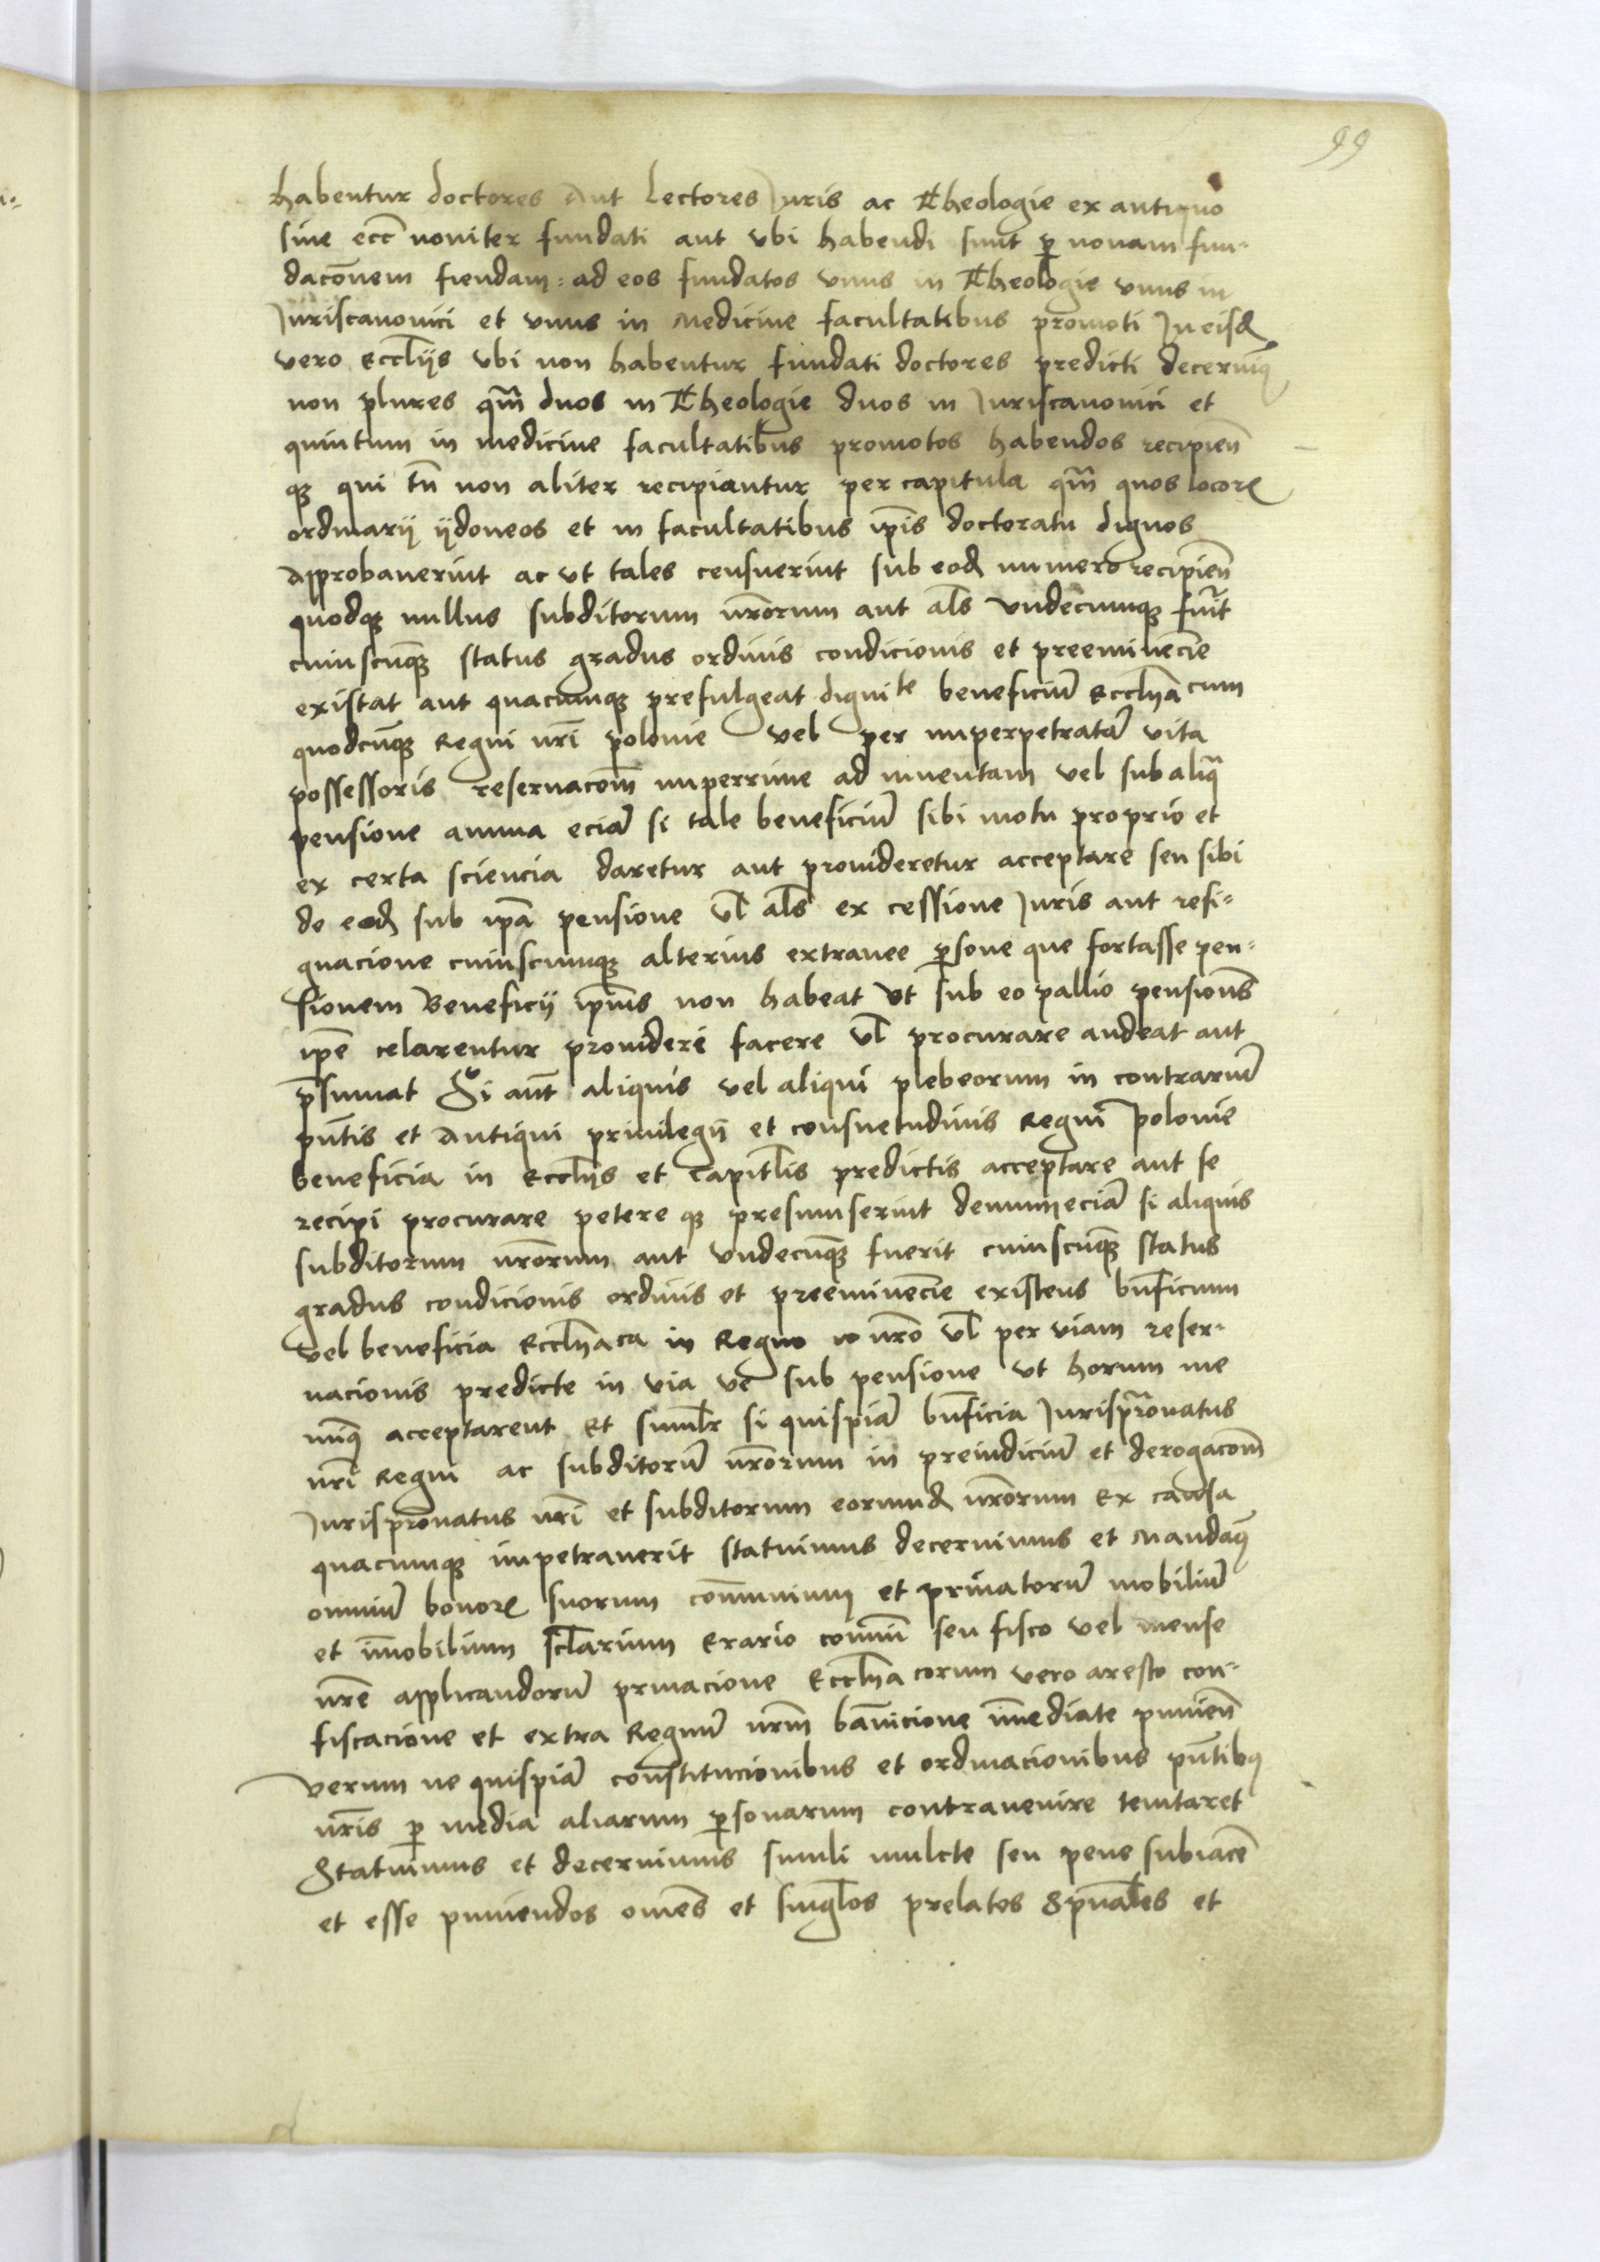 99
habentur doctores Aut Lectores Juris ac Theologie ex antiquo
sive ecc̄ noviter fundati aut ubi habendi sunt ꝑ novam fun-
dacōnem fiendam: ad eos fundatos unus in Theologie unus in
Juriscanonici et unus in Medicine facultatibus promoti In eisd
vero Eccl̄iis ubi non habentur fundati doctores predicti decernimꝰ
non plures qm̄ duos in Theologie duos in Juriscanonici et
quintum in medicine facultatibus promotos habendos recipien̄
qꝫ qui tn̄ non aliter recipiantur per capitula qm̄ quos locorꝝ
ordinarii iidoneos et in facultatibus ip̄is doctoratu dignos
Approbaverint ac ut tales censuerint sub eod numero recipien̄
quodqꝫ nullus subditorum nr̄orum aut al̄s undecumqꝫ fuīt
cuiuscūqꝫ status gradus ordinis condicionis et preeminēcie
existat aut quacumqꝫ prefulgeat dignite beneficiū Eccl̄iācum
quodcūqꝫ Regni nr̄i polonie vel per imperpetratā vita
possessoris reservacōm nuperrime ad inventam vel sub aliqͣ
pensione annua eciā si tale beneficiū sibi motu proprio et
ex certa sciencia daretur aut provideretur acceptare seu sibi
de eod sub ip̄a pensione vl̄ al̄s ex cessione Juris aut resi-
gnacione cuiuscumqꝫ alterius extranee ꝑsone que fortasse pen-
sionem Beneficii ip̄ius non habeat Ut sub eo pallio pensiones
ip̄e celarentur providere facere vl̄ procurare audeat aut
p̄sumat Si aūt aliquis vel aliqui plebeorum in contrariū
pn̄tis et Antiqui privilegii et consuetudinis Regni polonie
beneficia in Eccl̄iis et capitl̄is predictis acceptare aut se
recipi procurare petere qꝫ presumserint demum eciā si aliquis
subditorum nr̄orum aut undecūqꝫ fuerit cuiuscūqꝫ status
gradus condicionis ordinis et preeminēcie existens bn̄ficium
vel beneficia Eccl̄iāca in Regno nr̄o vl̄ per viam reser-
vacionis predicte in via ve sub pensione ut horum me
nūqꝫ acceptarent Et simil̄r si quispiā bn̄ficia Jurispr̄onatus
nr̄i Regni ac subditorū nr̄orum in preiudiciū et derogacōm
Jurispronatus nr̄i et subditorum eorumd nr̄orum Ex causa
quacumqꝫ impetraverit statuimus decernimus et Mandamꝰ
omniū bonorꝝ suorum com̄unium et privatorū mobiliū
et im̄obilium sclarium Erario com̄ni seu fisco vel mense
nr̄e applicandorū privacione Eccl̄iācorum vero aresto con-
fiscacione et extra Regnū nr̄m bānicione im̄ediate punien̄
Verum ne quispiā constitucionibus et ordinacionibus pn̄tibꝰ
nr̄is ꝑ media aliarum ꝑsonarum contravenire temtaret
Statuimus et decernimus simili mulcte seu pene subiacē
et esse puniendos om̄es et singl̄os prelatos Spūales et